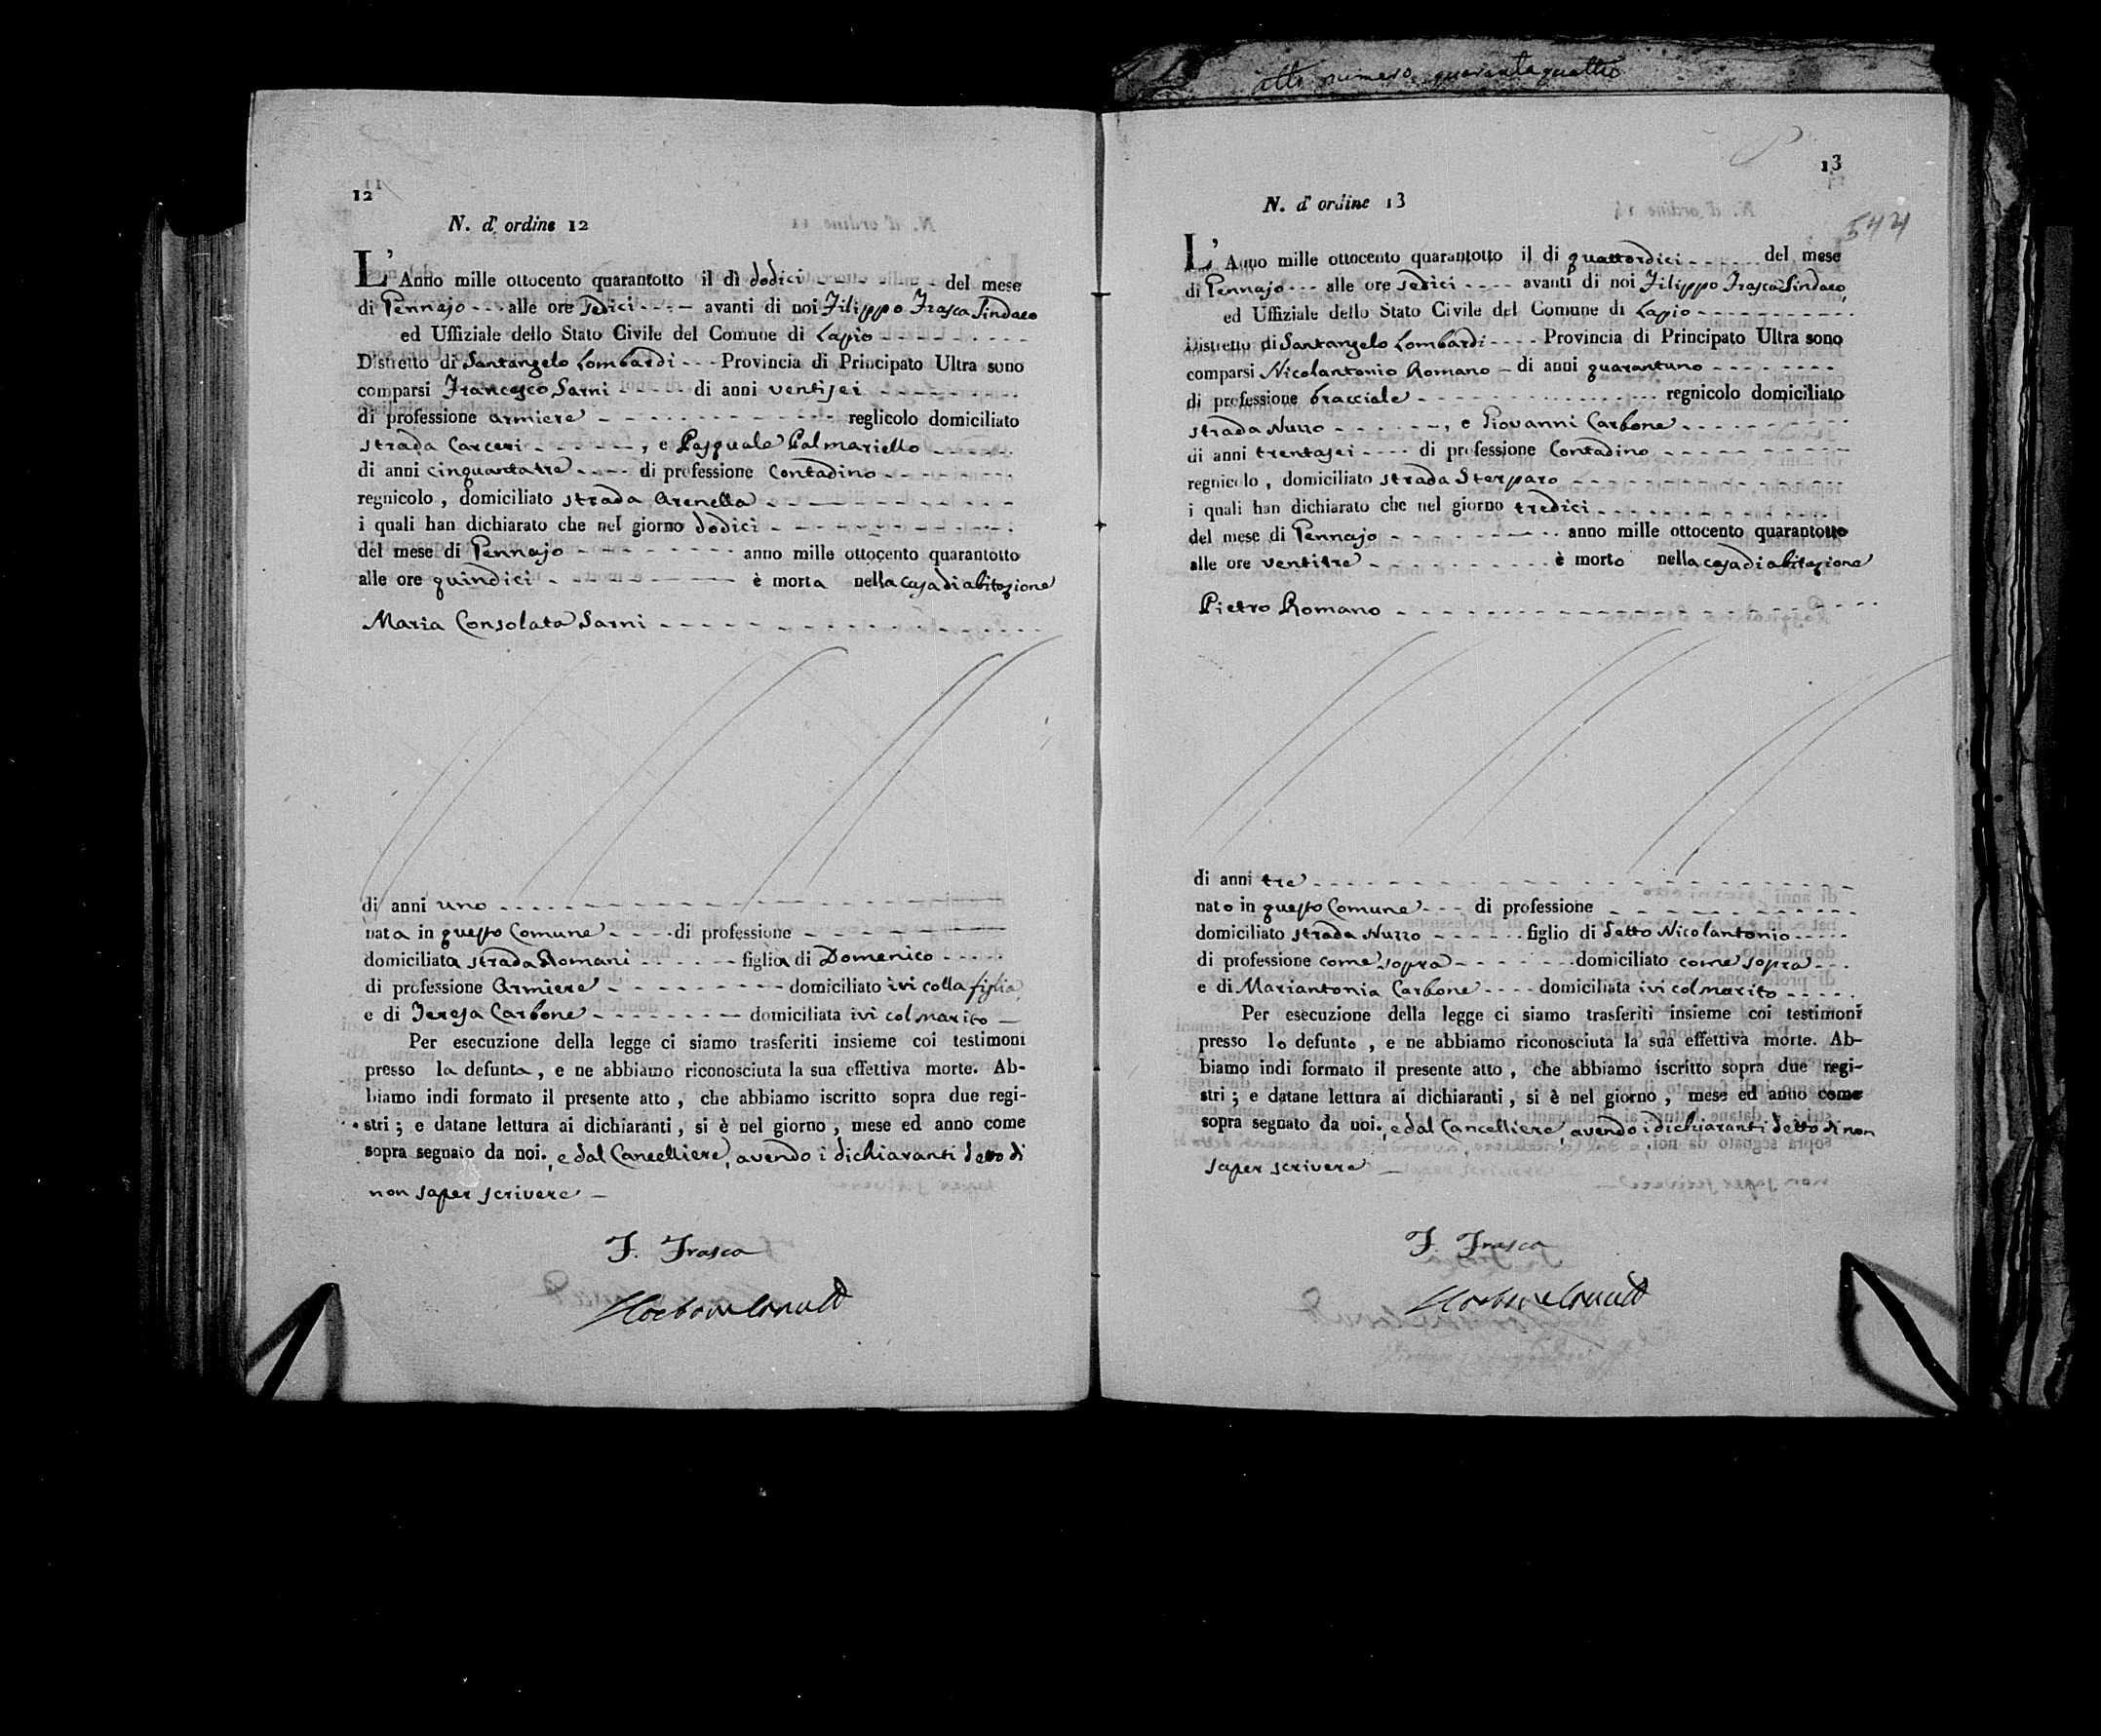 atto numero quarantaquattro
12
N. d'ordine 12
L'Anno mille ottocento quarantotto il dì dodici del mese
di Gennajo alle ore sedici avanti di noi Filippo Frasca Sindaco
ed Uffiziale dello Stato Civile del Comune di Lapio
Distretto di Santangelo Lombardi Provincia di Principato Ultra sono
comparsi Francesco Sarni di anni ventisei
di professione armiere reglicolo domiciliato
strada Carceri , e Pasquale Palmariello
di anni cinquantatre di professione Contadino
regnicolo , domiciliato strada Arenella
i quali han dichiarato che nel giorno dodici
del mese di Gennajo anno mille ottocento quarantotto
alle ore quindici è morta nella casa di abitazione
Maria Consolata Sarni
di anni uno
nata in questo Comune di professione
domiciliata strada Romani figlia di Domenico
di professione Armiere domiciliato ivi colla figlia
e di Teresa Carbone domiciliata ivi col marito
Per esecuzione della legge ci siamo trasferiti insieme coi testimoni
presso la defunta , e ne abbiamo riconosciuta la sua effettiva morte. Ab-
biamo indi formato il presente atto , che abbiamo iscritto sopra due regi-
stri ; e datane lettura ai dichiaranti , si è nel giorno , mese ed anno come
sopra segnato da noi. , e dal Cancelliere, avendo i dichiaranti detto di
non saper scrivere
F. Frasca
13
N. d'ordine 13
544
L'Anno mille ottocento quarantotto il di quattordici del mese
di Gennajo alle ore sedici avanti di noi Filippo Frasca Sindaco
ed Uffiziale dello Stato Civile del Comune di Lapio
Distretto di Santangelo Lombardi Provincia di Principato Ultra sono
comparsi Nicolantonio Romano di anni quarantuno
di professione bracciale regnicolo domiciliato
strada Nuzzo , e Giovanni Carbone
di anni trentasei di professione Contadino
regnicolo , domiciliato strada Sterparo
i quali han dichiarato che nel giorno tredici
del mese di Gennajo anno mille ottocento quarantotto
alle ore ventitre è morto nella casa di abitazione
Pietro Romano
di anni tre
nato in questo Comune di professione
domiciliato strada Nuzzo figlio di detto Nicolantonio
di professione come sopra domiciliato come sopra
e di Mariantonia Carbone domiciliata ivi col marito
Per esecuzione della legge ci siamo trasferiti insieme coi testimoni
presso lo defunto , e ne abbiamo riconosciuta la sua effettiva morte. Ab-
biamo indi formato il presente atto , che abbiamo iscritto sopra due regi-
stri ; e datane lettura ai dichiaranti , si è nel giorno , mese ed anno come
sopra segnato da noi. , e dal Cancelliere, avendo i dichiaranti detto di non
saper scrivere
F. Frasca